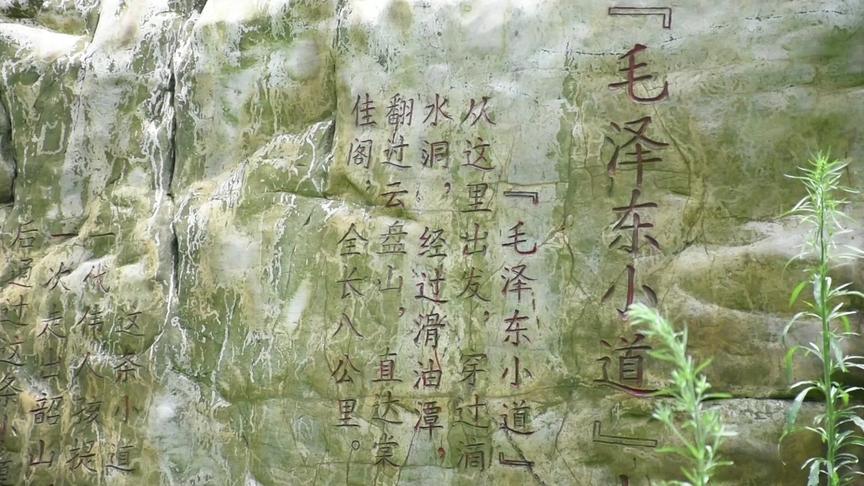 『毛泽东小道』
『毛泽东小道』
从这里出发，穿过滴
水洞，经过滑油潭，
翻过云盘山，直达棠
佳阁，全长八公里。
这条小道
一代伟人孩提
一次走出韶山
后通过这条小道